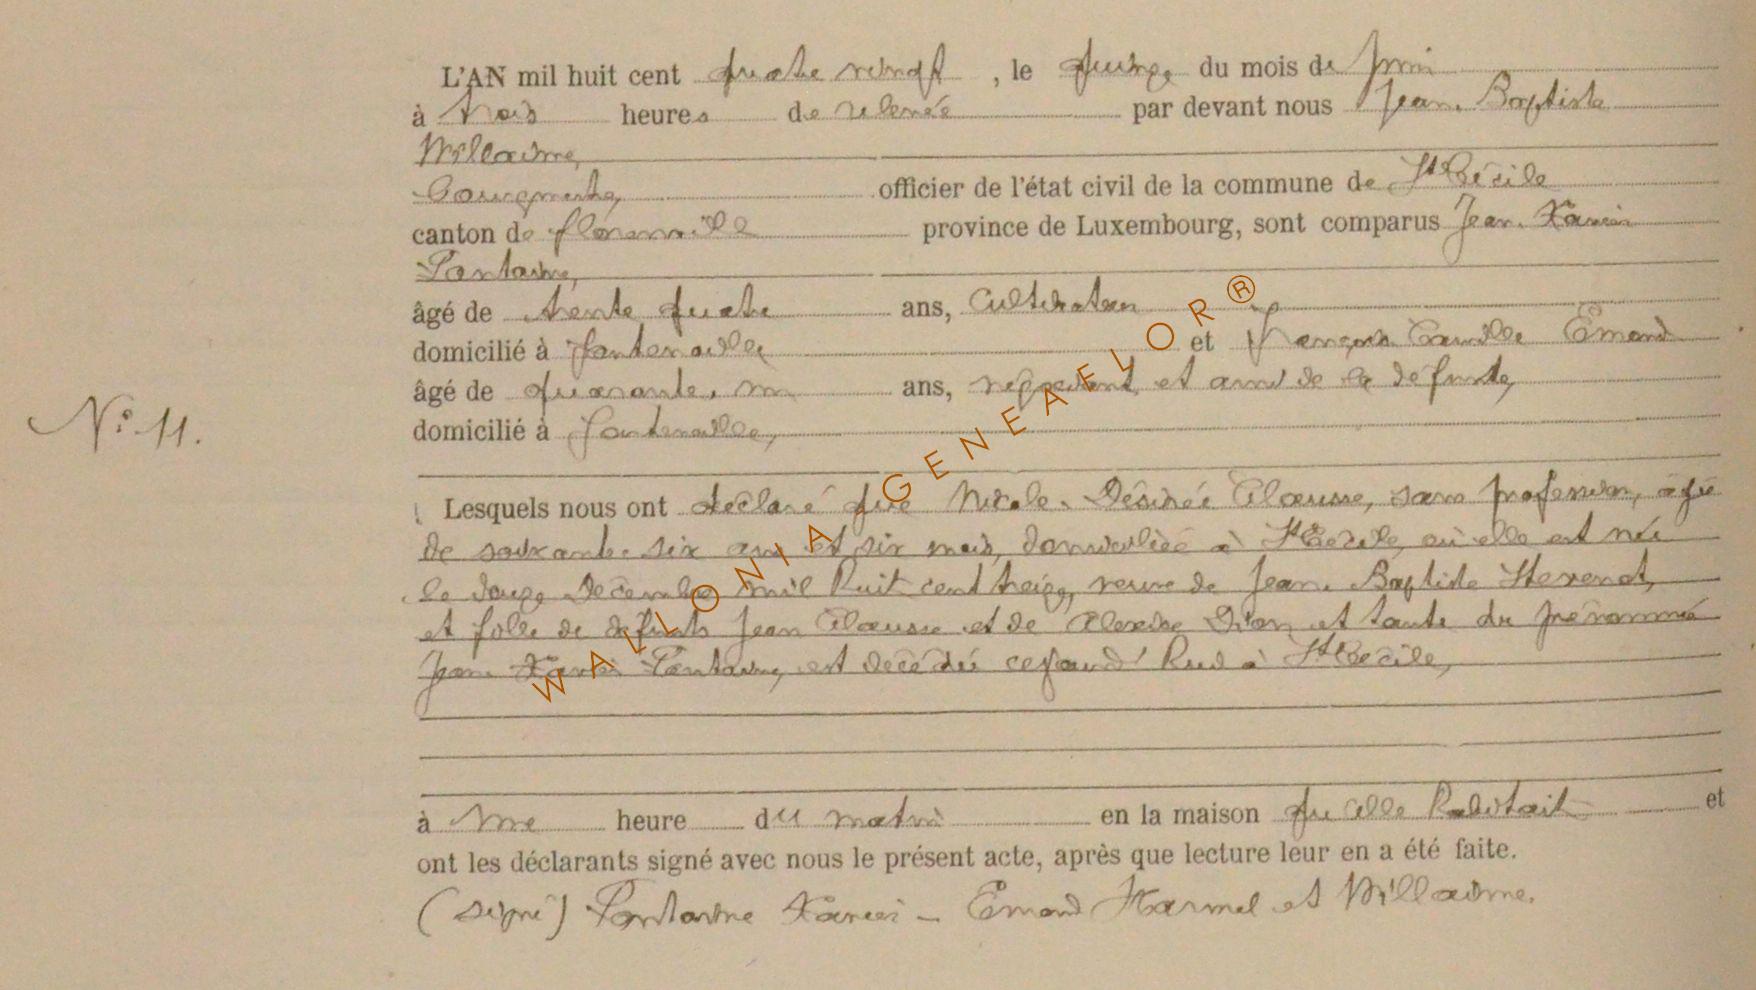 L'AN mil huit cent quatre vingt, le quinze du mois de Juin
à trois heures de relevée par devant nous Jean-Baptiste
Willaime,
Bourgmestre, officier de l'état civil de la commune de Ste Cécile
canton de florenville province de Luxembourg, sont comparus Jean-Xavier
Fontaine,
âgé de trente quatre ans, Cultivateur
domicilié à fontenoille et François Camille Emond
âgé de quarante-un ans, et ami de la défunte,
domicilié à fontenoille,
N° 11.
Lesquels nous ont déclaré que Nicole-Désirée Clausse, sans profession, âgée
de soixante-six ans et six mois, domiciliée à Ste Cécile, où elle est née
le douze Décembre mil huit cent treize, veuve de Jean-Baptiste Stevenot,
et fille de défunts Jean Clausse et de Dion et tante du prénommé
Jean-Xavier Fontaine, est décédée cejourd'hui à Ste Cécile,
à une heure du matin en la maison qu'elle habitait et
ont les déclarants signé avec nous le présent acte, après que lecture leur en a été faite.
(signé) Fontaine Xavier - Emond Harmel et Willaime.
WALLONIA GENEAFLOR®